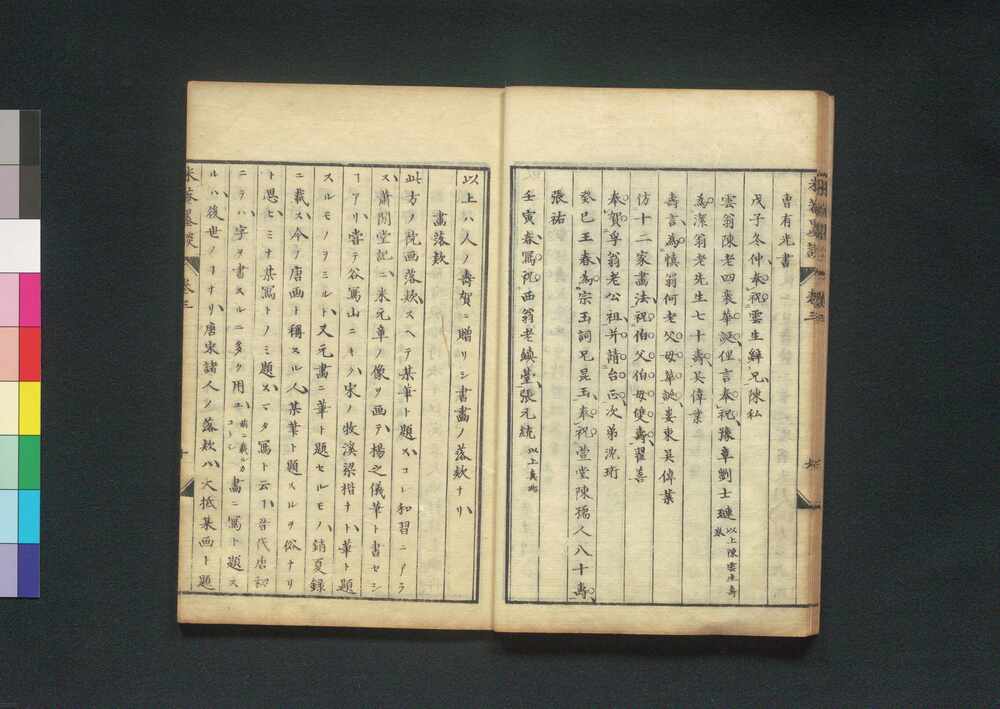 曹有光書
戊子冬仲奉祝雲生辭兄陳私
雲翁陳老四袠華誕俚言奉祝豫章劉士璉以上陳雲生壽
為潔翁老先生七十壽吳偉業
壽言為慎翁何老父母華誕婁東吳偉業
仿十二家畫法祝伯父伯母雙壽翟善
奉賀孚翁老公祖并請台正次弟深珩
癸巳王春為宗玉詞兄昆玉奉祝萱堂陳孺人八十壽
張祐
壬寅春寫祝西翁老鎮臺張元統
以上ハ人ノ壽賀ニ贈リシ書畫ノ落欵ナリ
畫落欵
此方ノ院画落欵スヘテ某筆ト題スコレ和習ニアラ
ス蕭閑堂記ニ米元章ノ像ヲ画テ楊之儀筆ト書セシ
ヿアリ嘗テ谷写山ニキク宋ノ牧溪梁楷ナト筆ト題
スルモノヲミルト又元畫ニ筆ト題セルモノ銷夏録
ニ載ス今ノ唐画ト稱スル人某筆ト題スルヲ俗ナリ
ト思ヒミナ某寫トノミ題スマタ寫ト云フ晉代唐初
ニテハ字ヲ書スルニ多ク用ユ前ニ載ルカコトシ畫ニ寫ト題ス
ルハ後世ノヿナリ唐宋諸人ノ落欵ハ大抵某画ト題
米菴墨談 卷三